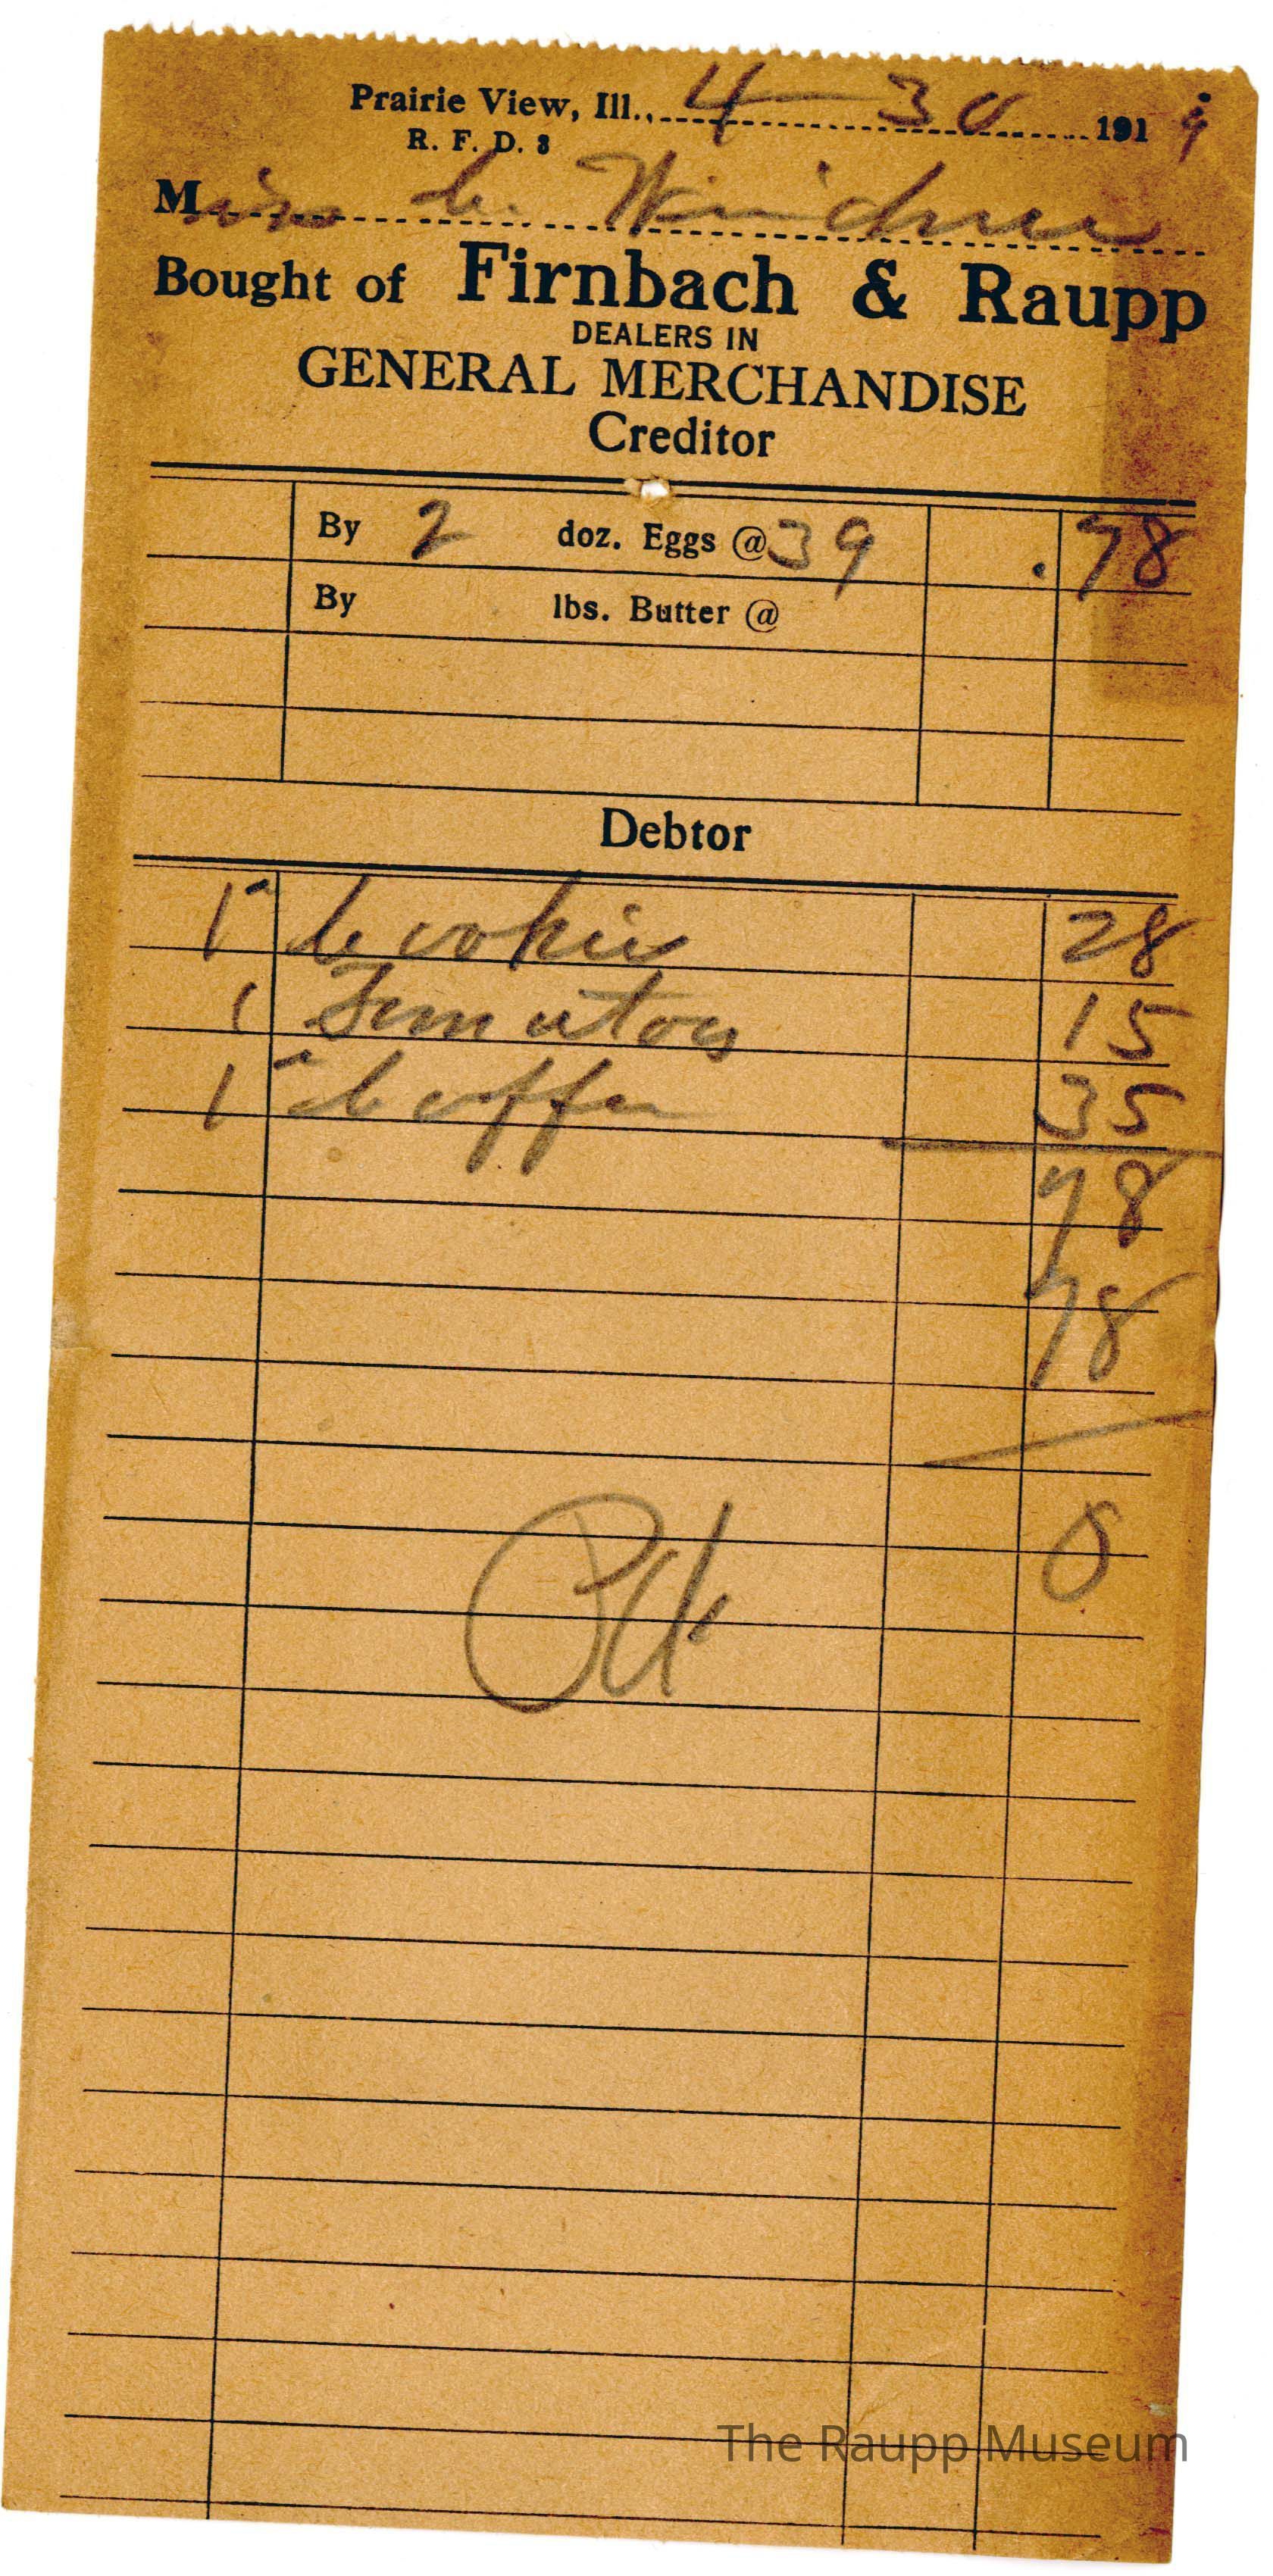 Prairie View, Ill., 4-30 1919
R. F. D. 3
Miss C.
Bought of Firnbach & Raupp
DEALERS IN
GENERAL MERCHANDISE
Creditor
By 2 doz. Eggs @ 39 .78
By lbs. Butter @
Debtor
1 Cookies 28
1 Tomatoes 15
1 Coffee 35
78
78
0
The Raupp Museum